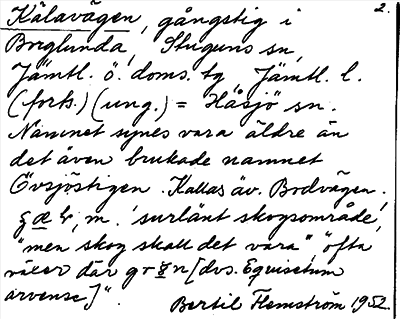 2.
Kälavägen, gångstig i
Borglunda, Stuguns sn,
Jämtl. ö. doms. tg Jämtl. l.
(forts.) (ung.) = Håsjö sn.
Namnet synes vara äldre än
det även brukade namnet
Övsjöstigen. Kallas äv. Bodvägen.
m. 'surlänt skogsområde',
"men skog skall det vara", "ofta
växer där [dvs. Equisetum
arvense]".
Bertil Flemström 1952.